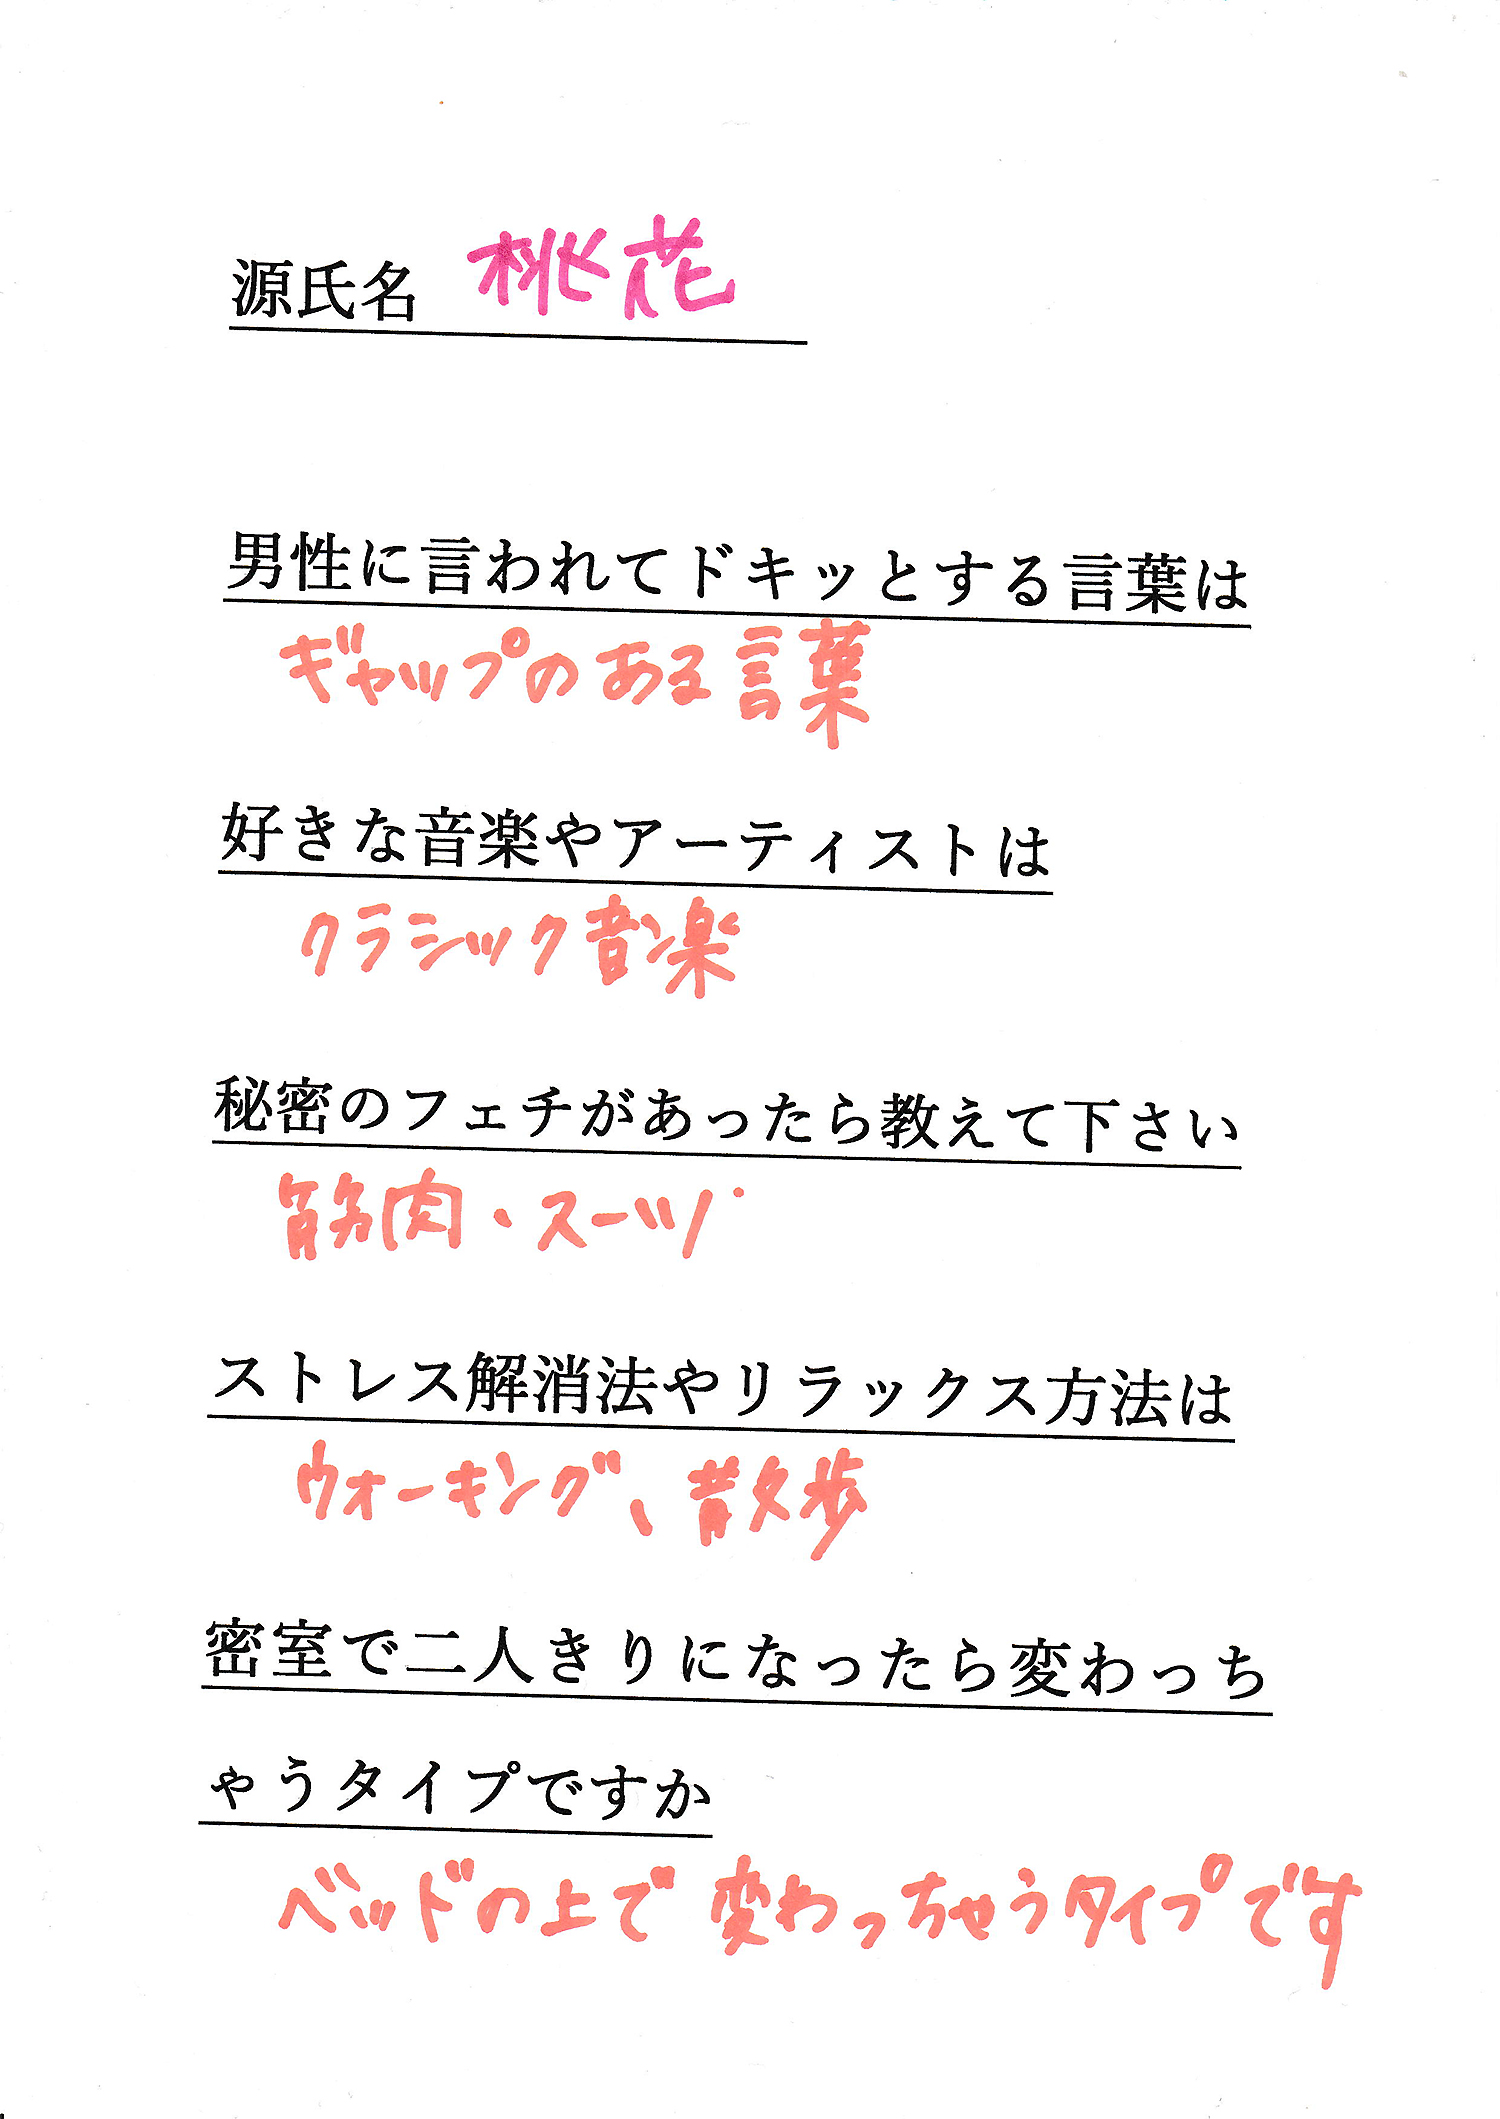 源氏名 桃花
男性に言われてドキッとする言葉は
ギャップのある言葉
好きな音楽やアーティストは
クラシック音楽
秘密のフェチがあったら教えて下さい
筋肉・スーツ
ストレス解消法やリラックス方法は
ウォーキング、散歩
密室で二人きりになったら変わっち
ゃうタイプですか
ベッドの上で変わっちゃうタイプです